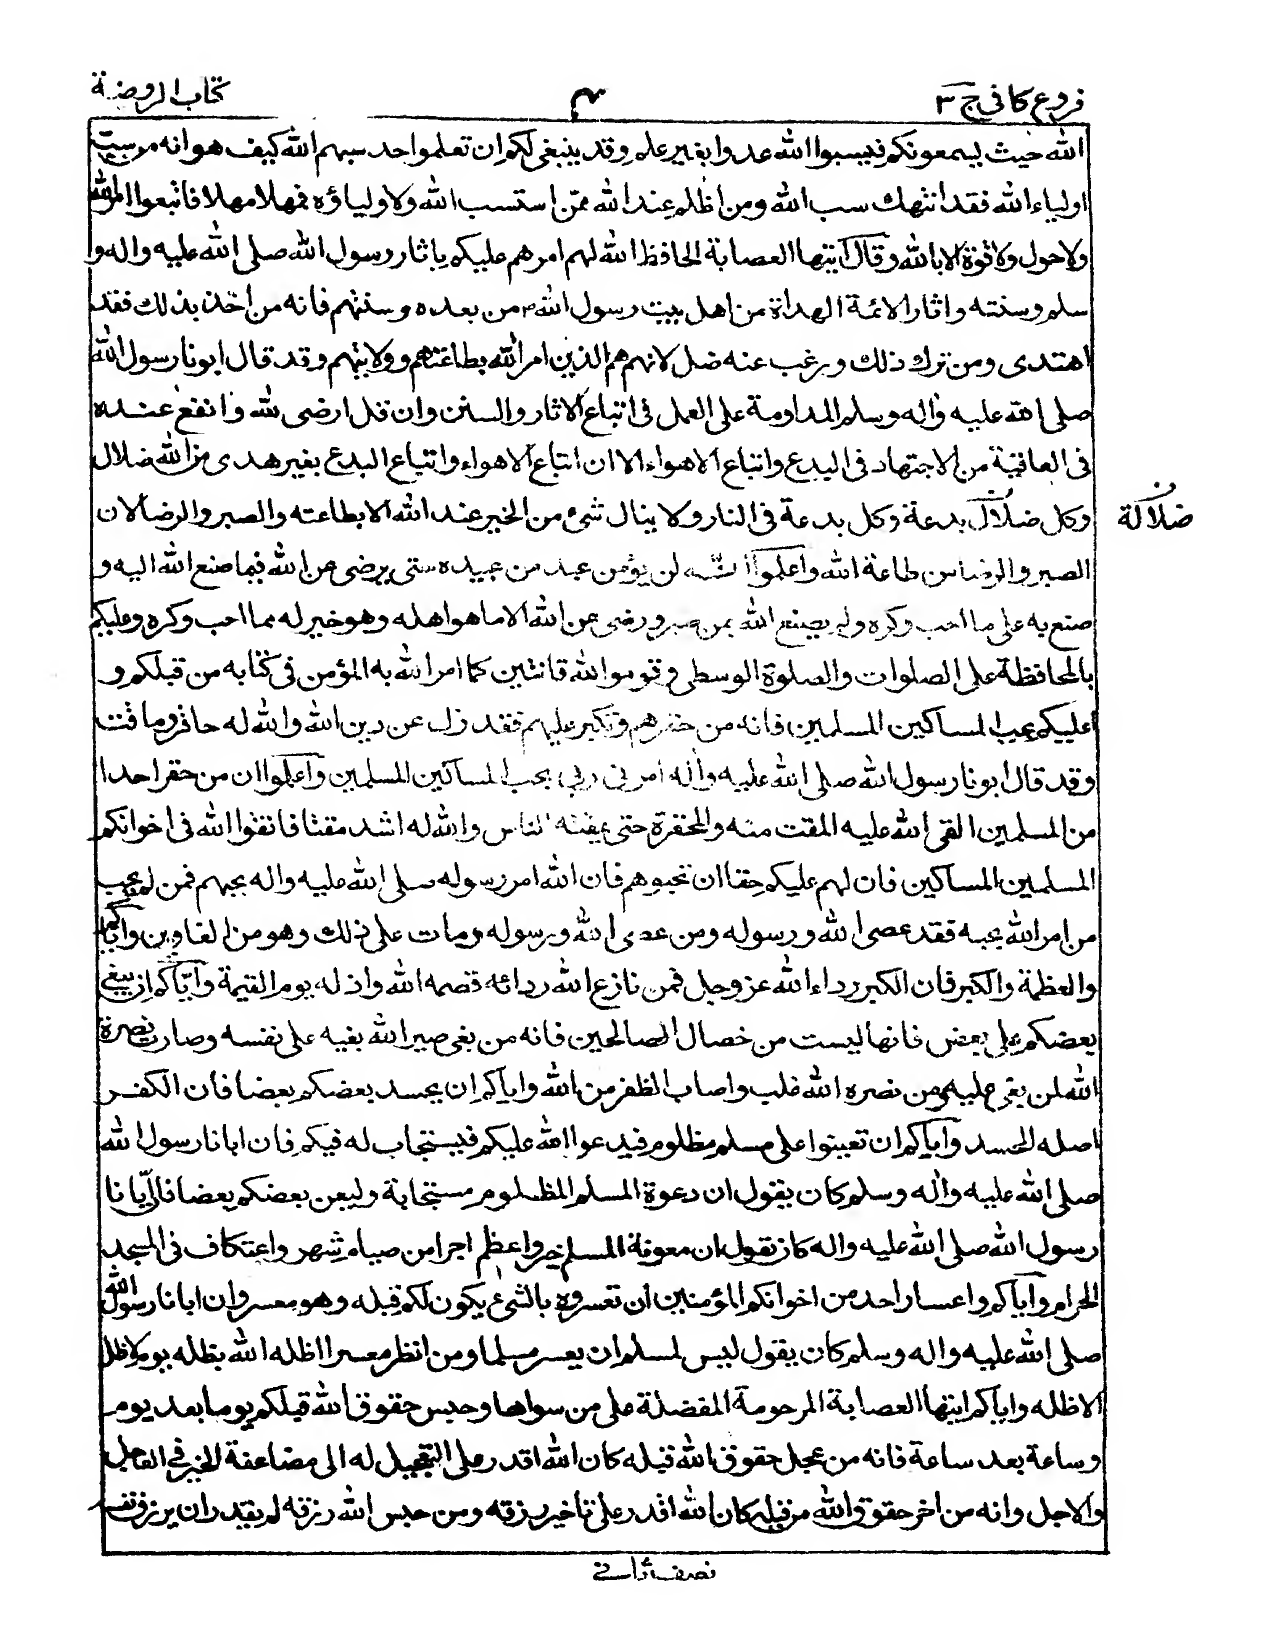 فروع كافى ج ٣
٤
كتاب الروضة
الله حيث يسمعونكم فيسبوا الله عدوا بغير علم وقد ينبغى لكم ان تعلموا حد سبهم الله كيف هو انه من سب
اولياء الله فقد انتهك سب الله ومن اظلم عند الله ممن استسب الله ولاولياؤه فمهلا مهلا فاتبعوا امر الله
ولا حول ولا قوة الا بالله وقال ايتها العصابة الحافظ الله لهم امرهم عليكم باثار رسول الله صلى الله عليه واله و
سلم وسنته واثار الائمة الهداة من اهل بيت رسول الله ص من بعده وسنتهم فانه من اخذ بذلك فقد
اهتدى ومن ترك ذلك ورغب عنه ضل لانهم هم الذين امر الله بطاعتهم وولايتهم وقد قال ابونا رسول الله
صلى الله عليه واله وسلم المداومة على العمل فى اتباع الاثار والسنن وان قل ارضى لله وانفع عنده
فى العاقبة من الاجتهاد فى البدع واتباع الاهواء الا ان اتباع الاهواء واتباع البدع بغير هدى من الله ضلال
وكل ضلال بدعة وكل بدعة فى النار ولا ينال شئ من الخير عند الله الا بطاعته والصبر والرضا لان
ضلالة ن
الصبر والرضا من طاعة الله واعلموا انه لن يؤمن عبد من عبيده حتى يرضى عن الله فيما صنع الله اليه و
صنع به على ما احب وكره ولم يصنع الله بمن صبر ورضى عن الله الا ما هو اهله وهو خير له مما احب وكره وعليكم
بالمحافظة على الصلوات والصلوة الوسطى وقوموا لله قانتين كما امر الله به المؤمن فى كتابه من قبلكم و
عليكم بحب المساكين المسلمين فانه من حقرهم وتكبر عليهم فقد زل عن دين الله والله له حاقر وماقت
وقد قال ابونا رسول الله صلى الله عليه واله امرنى ربى بحب المساكين المسلمين واعلموا ان من حقر احدا
من المسلمين القى الله عليه المقت منه والمحقرة حتى يمقته الناس والله له اشد مقتا فاتقوا الله فى اخوانكم
المسلمين المساكين فان لهم عليكم حقا ان تحبوهم فان الله امر رسوله صلى الله عليه واله بحبهم فمن لم يحب
من امر الله بحبه فقد عصى الله ورسوله ومن عصى الله ورسوله ومات على ذلك وهو من الغاوين واياكم
والعظمة والكبر فان الكبر رداء الله عز وجل فمن نازع الله ردائه قصمه الله واذله يوم القيمة واياكم ان يبغى
بعضكم على بعض فانها ليست من خصال الصالحين فانه من بغى صير الله بغيه على نفسه وصارت نصرة
الله لمن بغى عليه ومن نصره الله غلب واصاب الظفر من الله واياكم ان يحسد بعضكم بعضا فان الكفر
اصله الحسد واياكم ان تعينوا على مسلم مظلوم فيدعوا الله عليكم فيستجاب له فيكم فان ابانا رسول الله
صلى الله عليه واله وسلم كان يقول ان دعوة المسلم المظلوم مستجابة وليعن بعضكم بعضا فان ابانا
رسول الله صلى الله عليه واله كان يقول ان معونة المسلم خير واعظم اجرا من صيام شهر واعتكاف فى المسجد
الحرام واياكم واعسار احد من اخوانكم المؤمنين ان تعسروه بالشئ يكون لكم قبله وهو معسر وان ابانا رسول الله
صلى الله عليه واله وسلم كان يقول ليس لمسلم ان يعسر مسلما ومن انظر معسرا اظله الله بظله يوم لا ظل
الا ظله واياكم ايتها العصابة المرحومة المفضلة على من سواها وحبس حقوق الله قبلكم يوما بعد يوم
وساعة بعد ساعة فانه من عجل حقوق الله قبله كان الله اقدر على التعجيل له الى مضاعفة الخير فى العاجل
والاجل وانه من اخر حقوق الله من قبله كان الله اقدر على تاخير رزقه ومن حبس الله رزقه لم يقدر ان يرزق نفسه
نصف ثانى